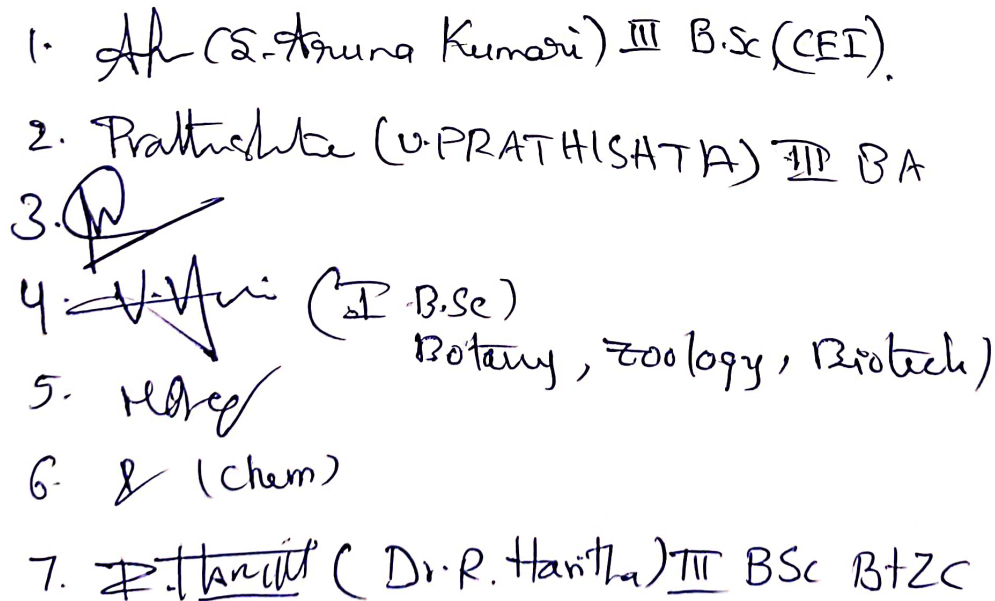 1. (S. Aruna Kumari) III B.Sc (CEI).
2. Prathishta (U. PRATHISHTA) III BA
3.
4. (I B.Sc)
Botany, Zoology, Biotech)
5.
6. (Chem)
7. R. Haritha (Dr. R. Haritha) III BSc BtZC